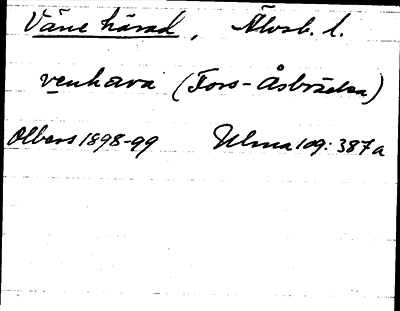 Väne härad, Älvsb. l.
venhæra (Fors-Åsbräcka)
Olbers 1898-99 Ulma 109:387a